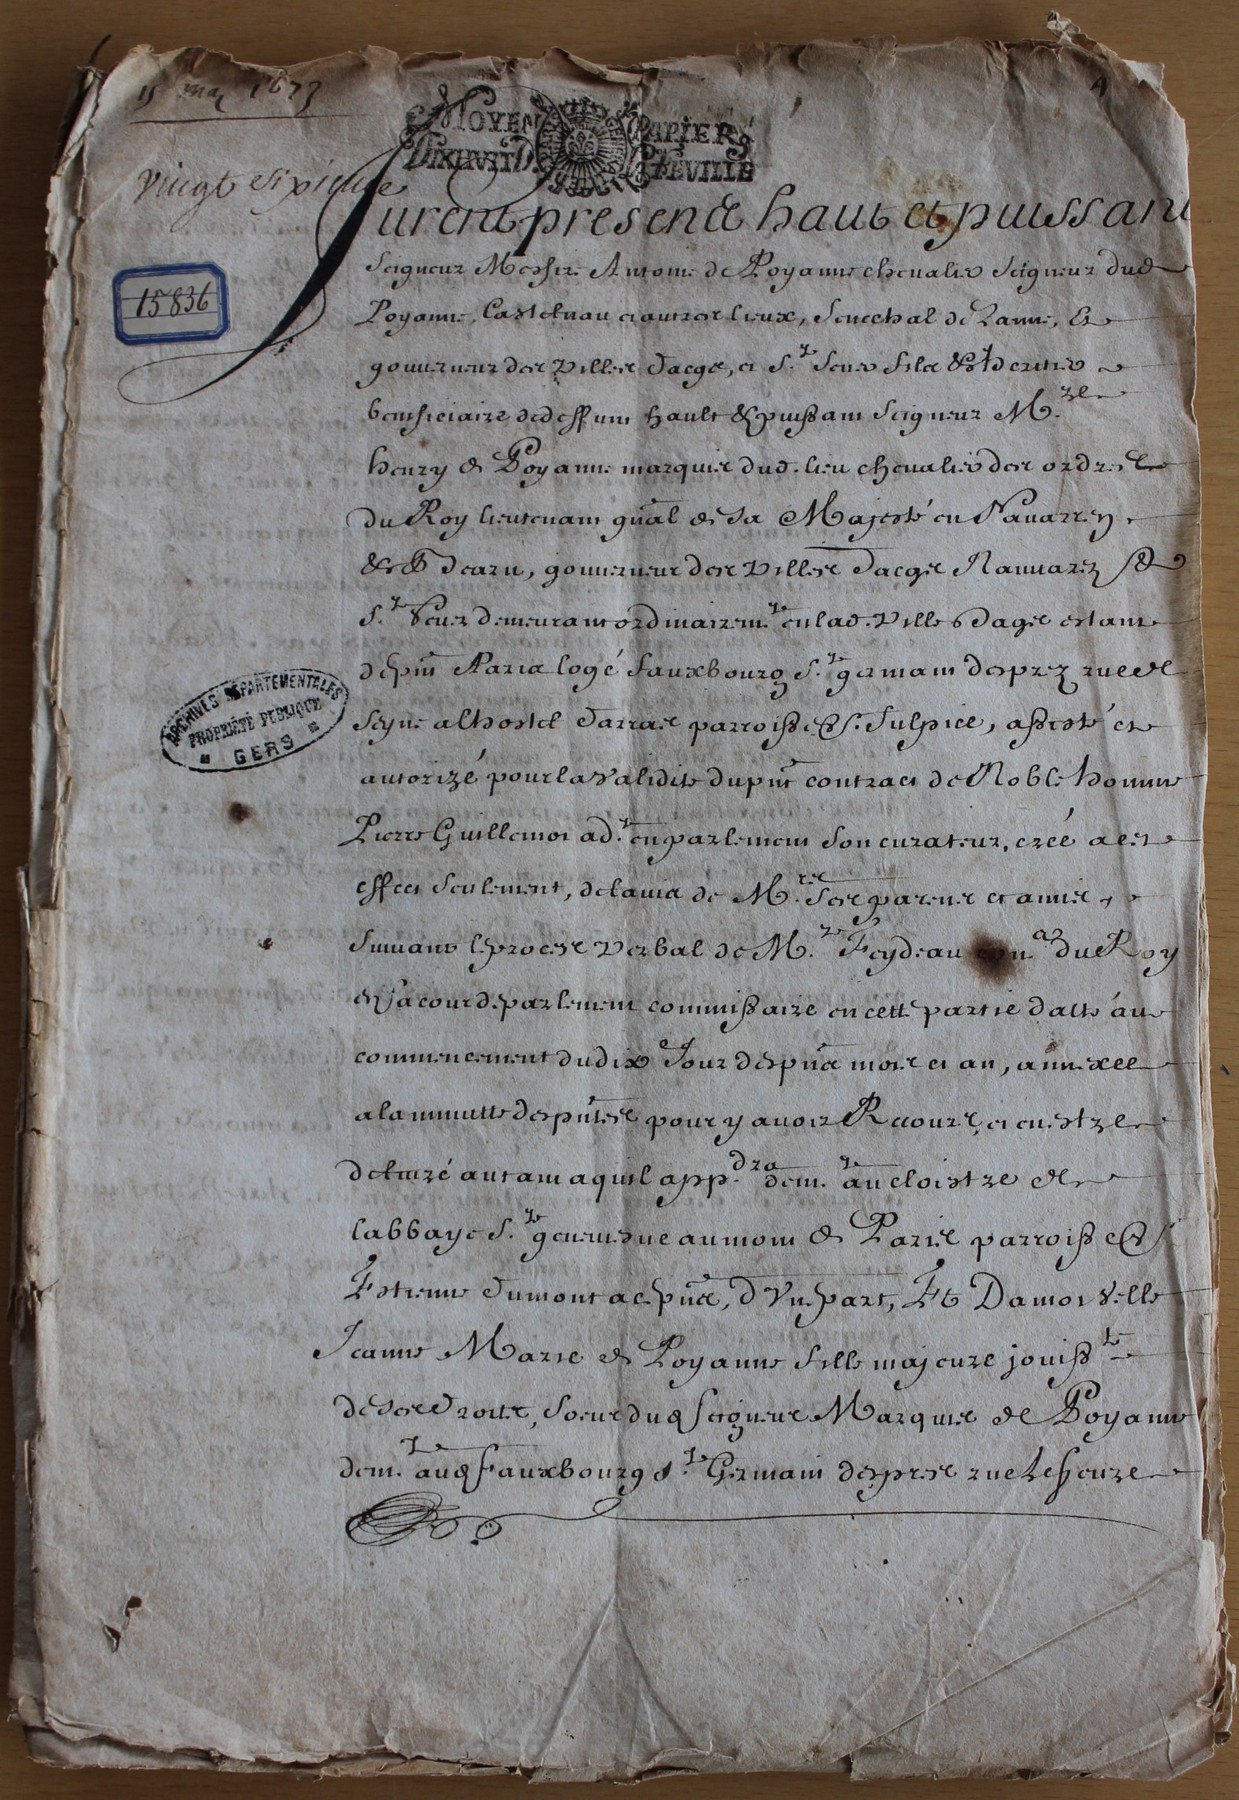 15 may 1673
MOYEN PAPIER
DIXHUIT D. LA FEUILLE
Vingt sixieme
15836
Furent presens haut et puissant
Seigneur Messire Antoine de Poyanne chevalier Seigneur dud
Poyanne, Castelnau et autres lieux, Senechal de Lanne, Et
gouverneur des Villes dacqs, et St. Sever fils & heritier
beneficiaire de deffunt hault & puissant Seigneur Mre
henry de Poyanne marquis dud. lieu chevalier des ordres
du Roy lieutenant gnal de Sa Majesté en Navarre
& Bearn, gouverneur des Villes dacqs Navarrez &
St. Sever demeurant ordinairemt en lad. Ville dacqs estant
de pnt a Paris logé fauxbourg St. germain desprez rue de
Seyne a lhostel darras parroisse St. Sulpice, assisté et
autorizé pour la validité du pnt contract de Noble homme
Pierre Guillemot adt. en parlement Son curateur, créé a cet
effect Seulement, de lavis de Mrs. Ses parens et amis,
suivant le proces Verbal de Mr. Feydeau coner du Roy
en Sa cour de parlement commissaire en cette partie datté au
commencement du dix Jour des pns mois et an, annexée
a la minutte des pntes pour y avoir Recours, et en estre
delivré autant a quil appdra demt. au cloistre de
labbaye Ste geneviesve au mont de Paris parroisse St
Estienne dumont a ce pnt, dVne part, Et Damoiselle
Jeanne Marie de Poyanne fille majeure jouisste
de ses droits, Soeur dud Seigneur Marquis de Poyanne
demt. aud fauxbourg St. Germain desprez rue
ARCHIVES DÉPARTEMENTALES
PROPRIÉTÉ PUBLIQUE
GERS